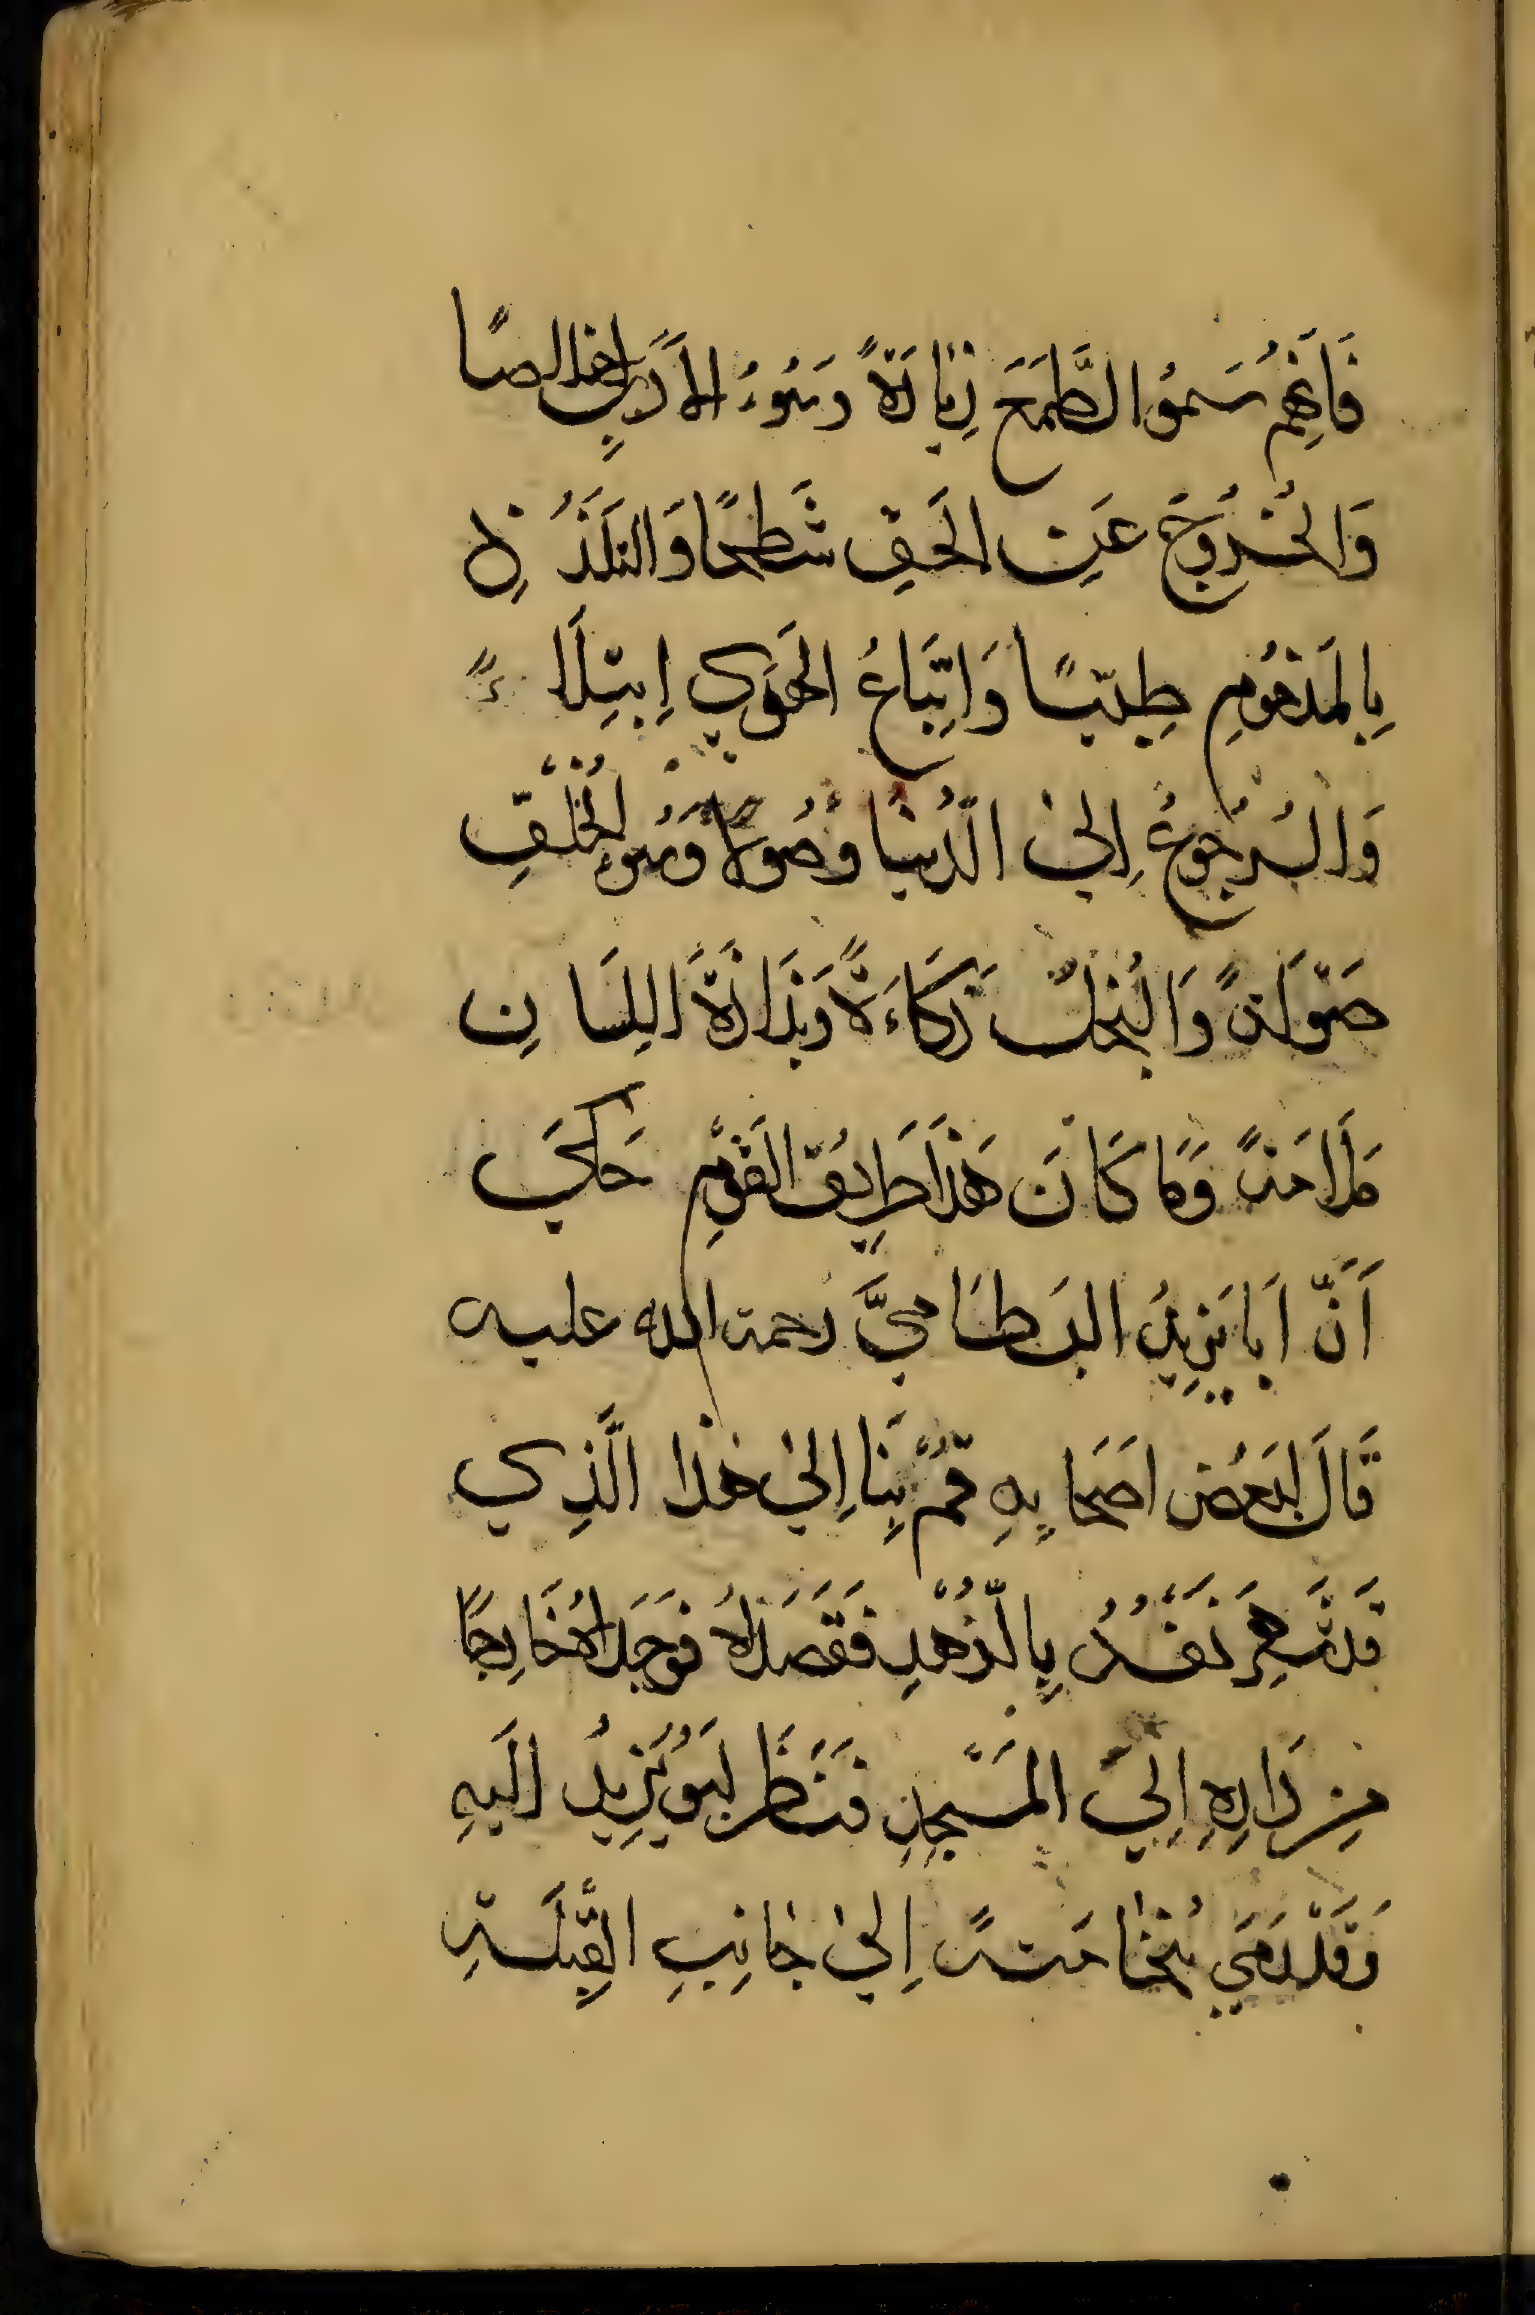 فَاَنَهُم سَموُا الطَّمَعَ زِيَادَةً وَسُوءُ الاَدَبِ اخلاصًا
وَالخُرُوجَ عَنِ الحَقِ شَطحًا وَالتلَذُذ
بِالمَذمُومِ طِيبًا وَاتِّبَاعُ الهَوَي اِبتِلَاءً
وَالرُجُوعُ اِلىٰ الدُّنيَا وُصُولاً وَسُوءِ الخُلُقِ
صَوّلَةً وَالبُخلُ زكَاءَةً وَبَذَاذَةَ اللِسَانِ
مَلَامَةً وَمَا كَانَ هَذَا طَرِيقَ القَوْمِ حَكَي
اَنَّ اَبَا يَزِيدُ البَسطَامِيَّ رحمة الله عليه
قَالَ لِبَعُض اصَحَابِهِ قُمّ بِنَا اِلىٰ هٰذا الَّذِي
قَد شَهِرَ نَفَسُهُ بِالزُّهْدِ فَقَصَدَاهُ فَوَجَداهُ خَارِجًا
مِن دَارِهِ اِلَي المَسّجِدِ فَنَظَر ابَوُ يَزِيدُ اِلَيهِ
وَقَدْ رَمَي نُخٰامَتهُ اِلىٰ جٰانِبِ القِبّلَةِ